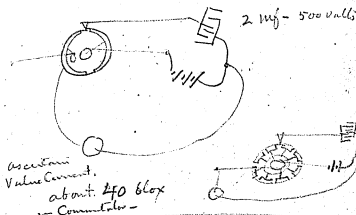 2 mf - 500 volts
ascertain
Value Current,
about 40 blox
- Commutator -